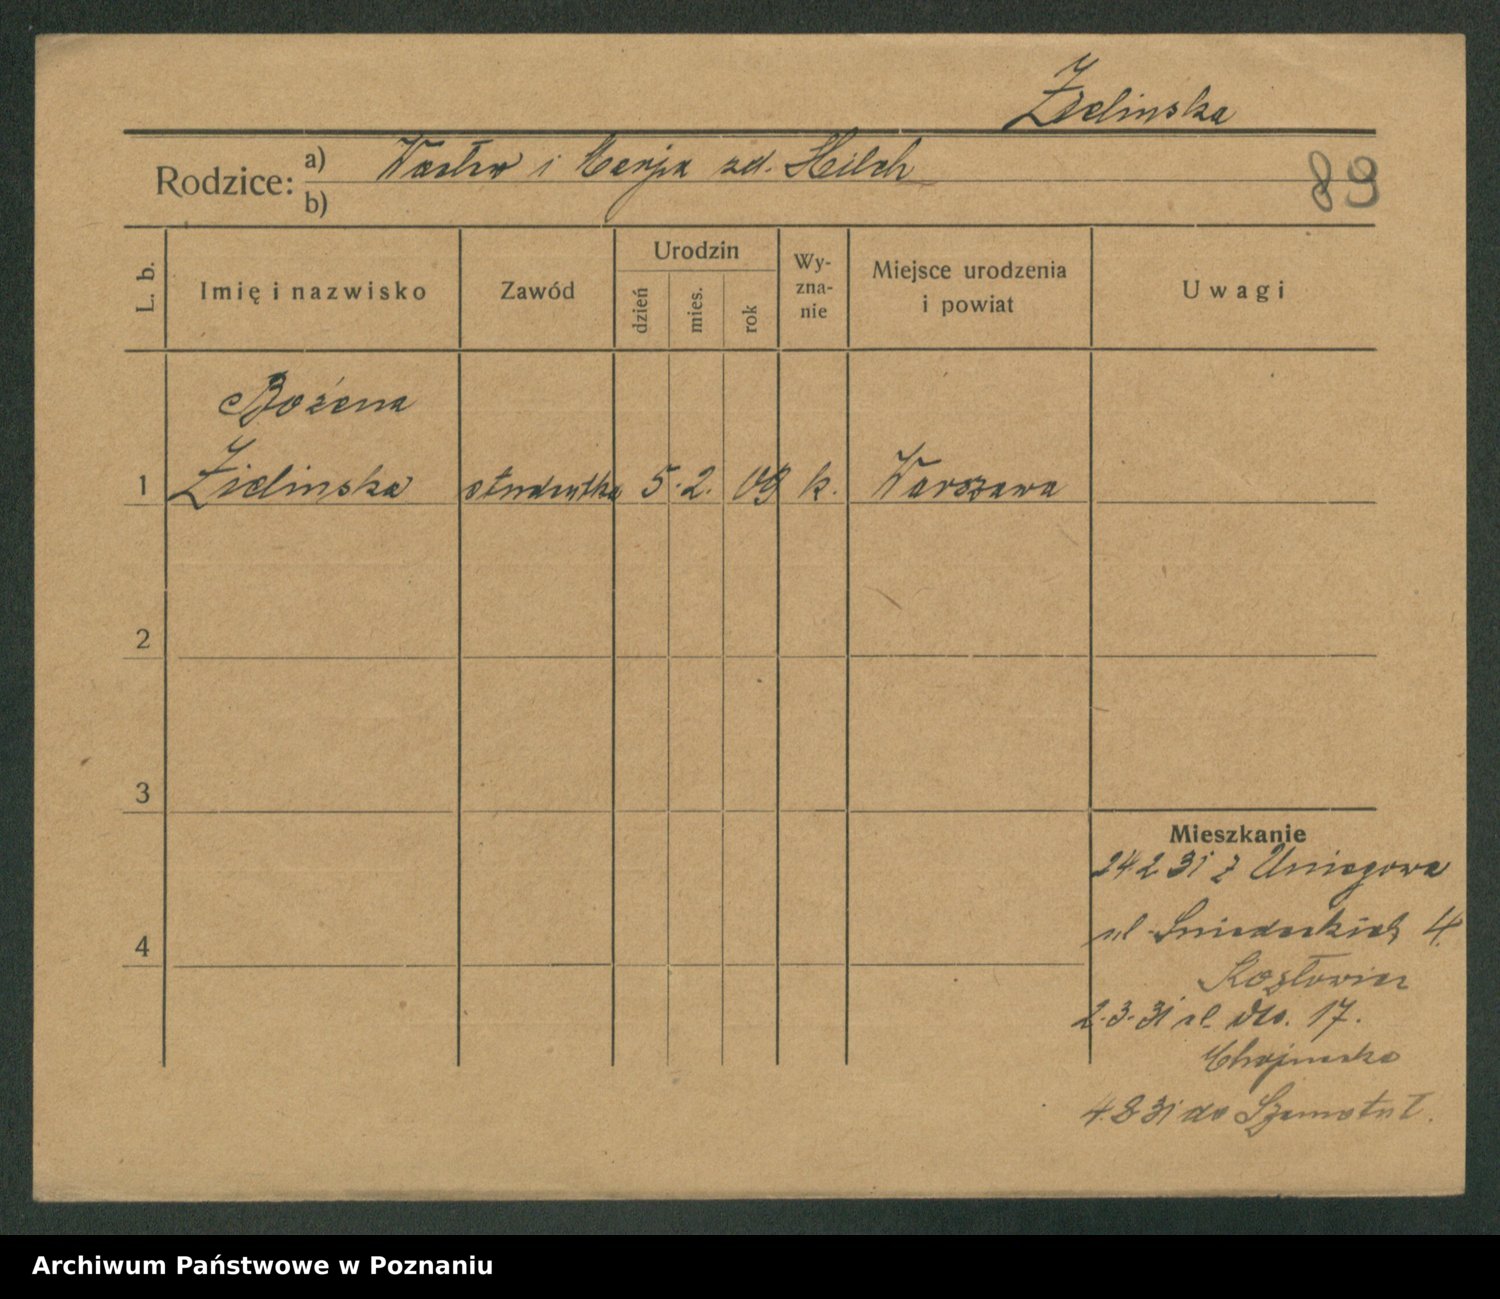 Zielinska
Rodzice: a) Wacław i Marja zd. Hilch
b)
89
L. b.
Imię i nazwisko
Zawód
Urodzin
dzień
mies.
rok
Wy-
zna-
nie
Miejsce urodzenia
i powiat
Uwagi
Bożena
1 Zielinska studentka 5. 2. 09 k. Warszawa
2
3
4
Mieszkanie
24 2 31 z
ul Sniadeckich 4.
2. 3. 31 ul. dto. 17.
Chojnacka
4. 8 31 do Szamotuł.
Archiwum Państwowe w Poznaniu